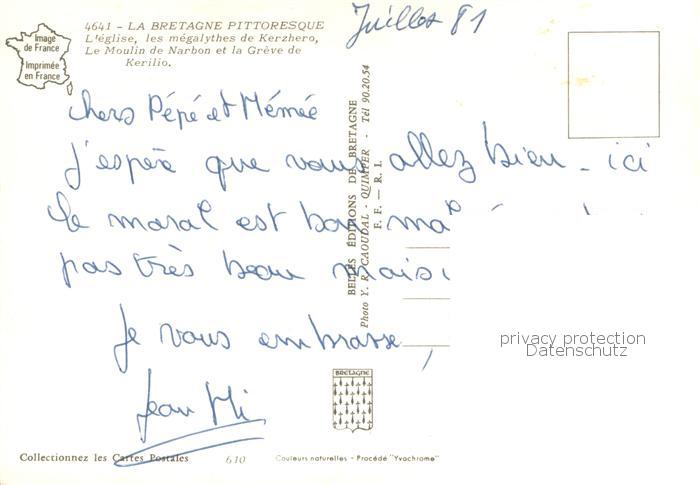 4641 - LA BRETAGNE PITTORESQUE
L'église, les mégalythes de Kerzhero,
Le Moulin de Narbon et la Grève de
Kerilio.
Image
de France
Imprimée
en France
Juillet 81
Chers Pépé et Mémée
J'espère que vous allez bien - ici
le moral est bon
pas très beau mais
Je vous embrasse,
Jean Mi
BELLES ÉDITIONS DE BRETAGNE
Photo Y. R. CAOUDAL - QUIMPER - Tél 90.20.54
F. F. — R. I.
privacy protection
Datenschutz
BRETAGNE
Collectionnez les Cartes Postales
610
Couleurs naturelles - Procédé "Yvachrome"